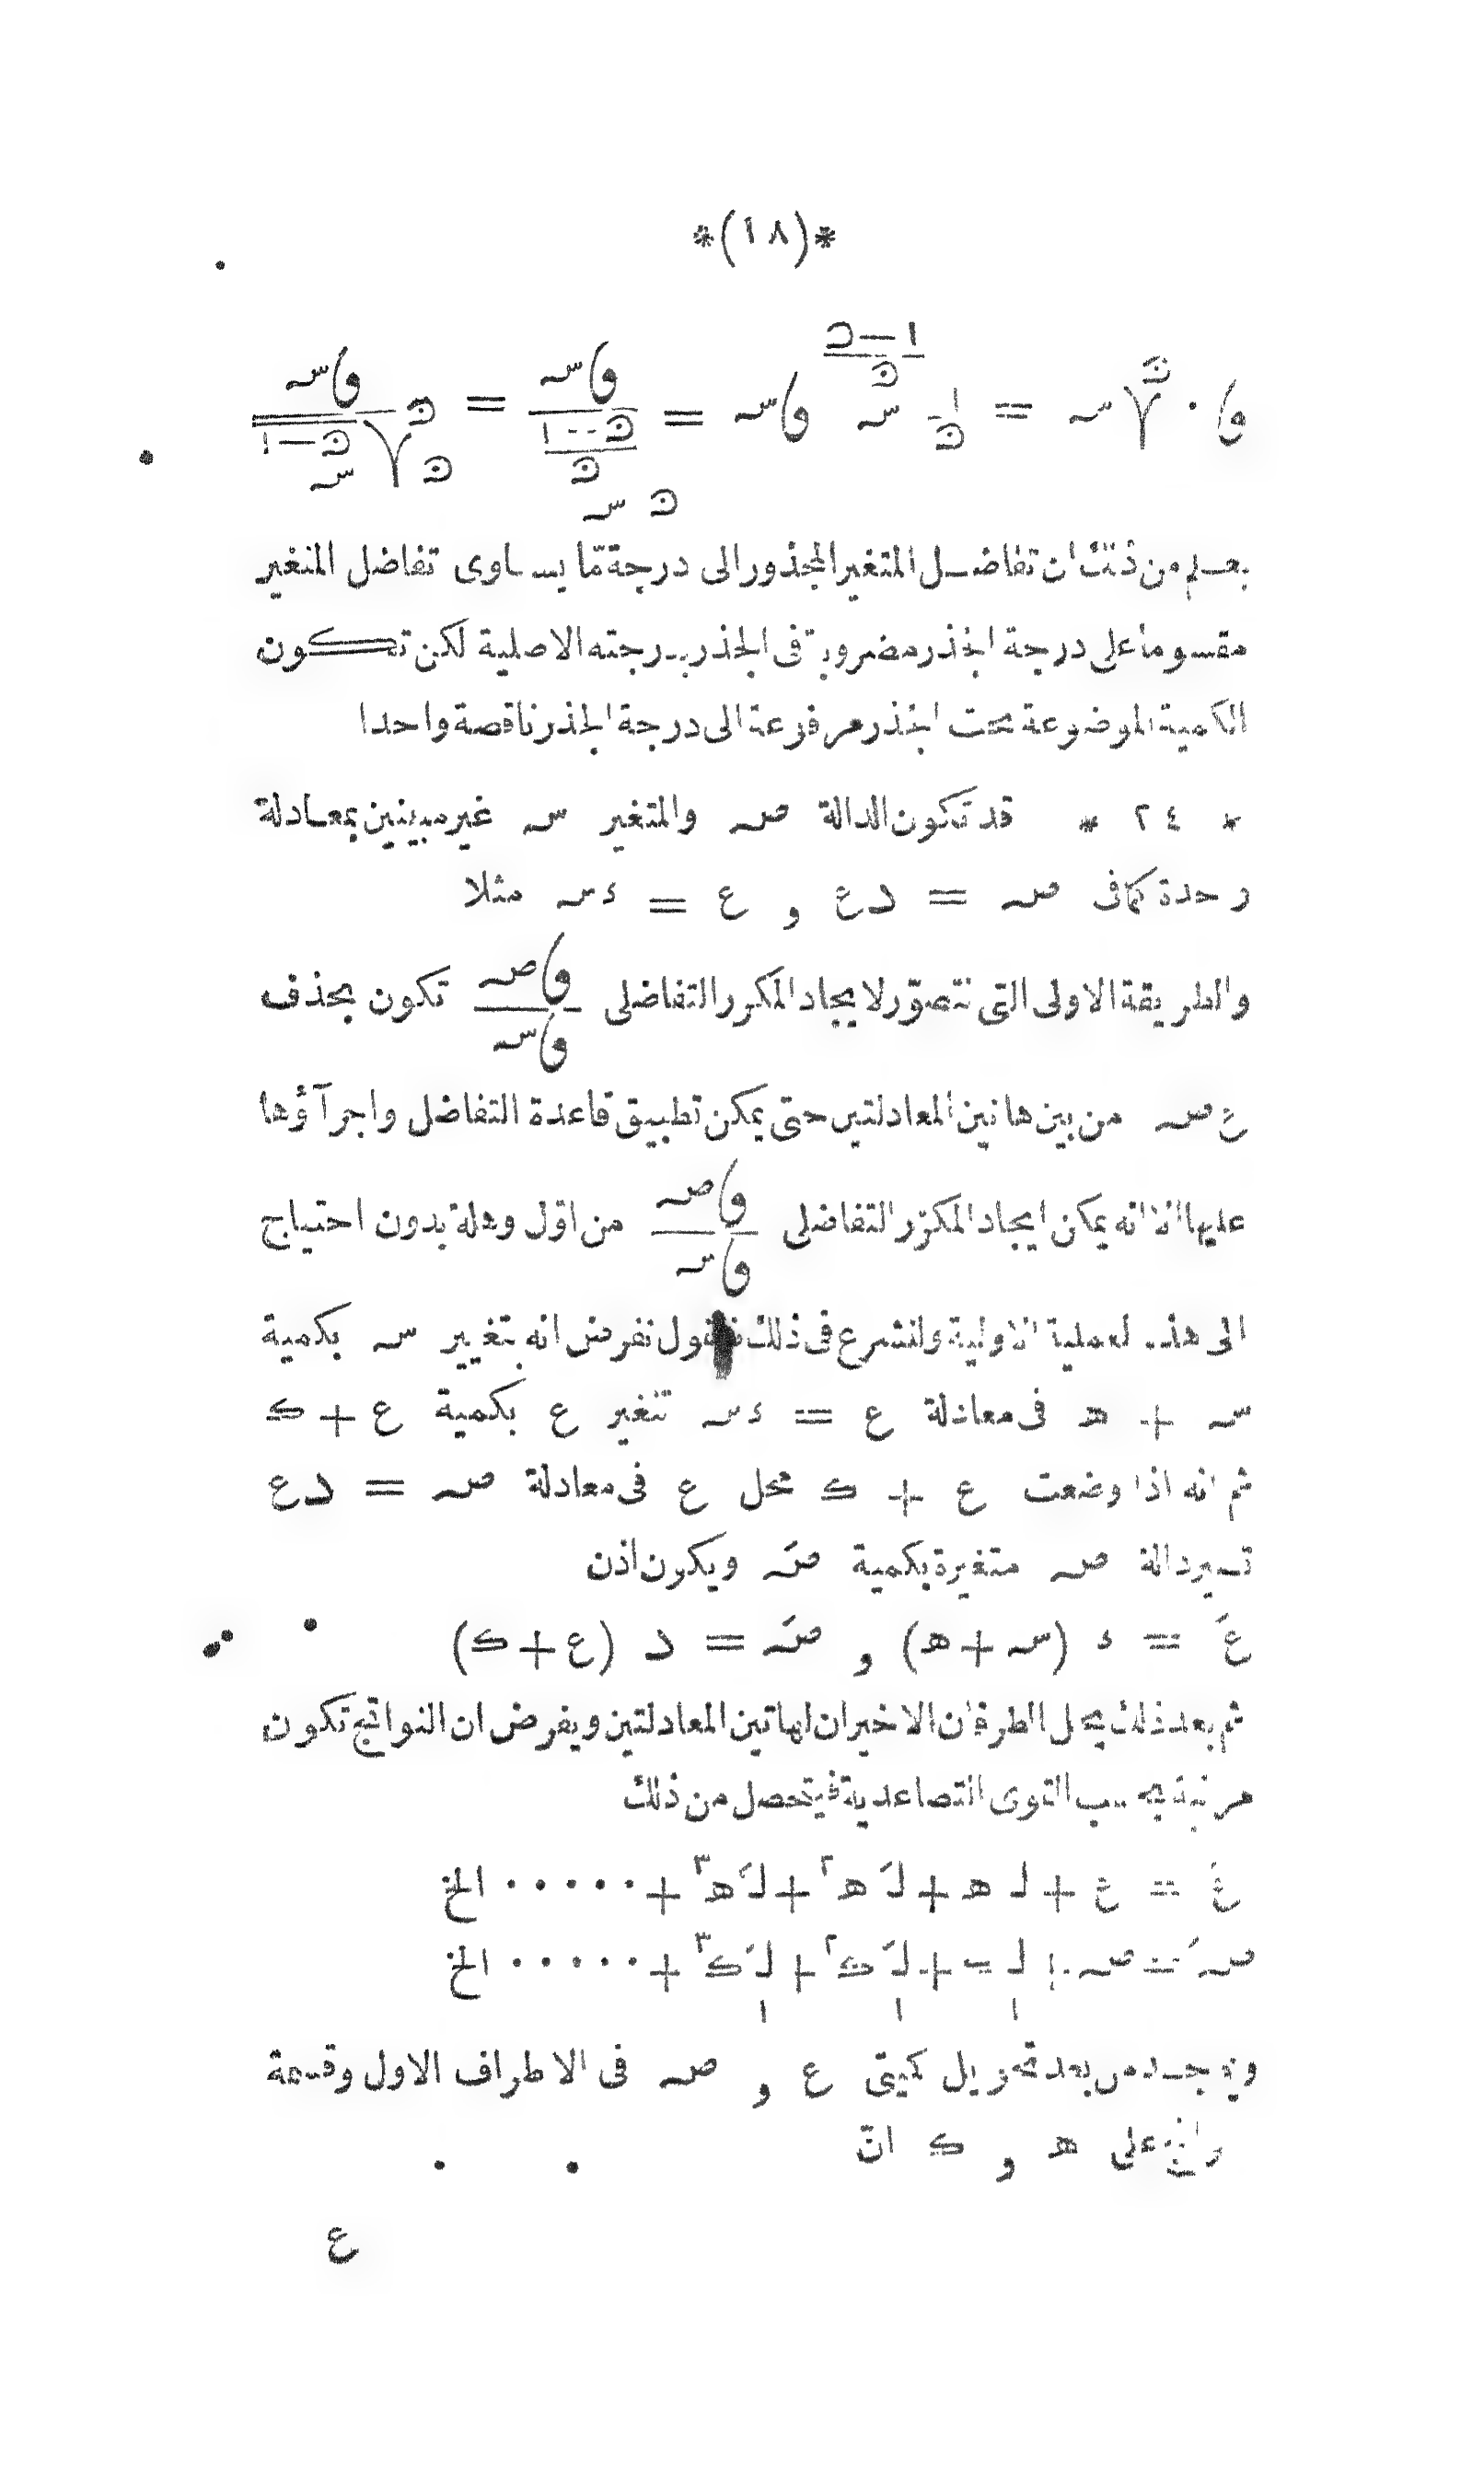 *(١٨)*
ﻭ . √ س = ١/ں س ^(١-ں)/ں ﻭس = ﻭس / ں س ^(ں-١)/ں = ﻭس / ں √ س ^(ں-١)
يعلم من ذلك ان تفاضل المتغير المجذور الى درجة ما يساوى تفاضل المتغير
مقسوما على درجة الجذر مضروبة فى الجذر بدرجته الاصلية لكن تكون
الكمية الموضوعة تحت الجذر مرفوعة الى درجة الجذر ناقصة واحدا
* ٢٤ * قد تكون الدالة صـ والمتغير سـ غير مبينين بمعادلة
واحدة كما فى صـ = دع و ع = ءسـ مثلا
والطريقة الاولى التى تتصوّر لايجاد المكرر التفاضلى ﻭصـ/ﻭسـ تكون بحذف
ع صـ من بين هاتين المعادلتين حتى يمكن تطبيق قاعدة التفاضل واجرآؤها
عليها الا انه يمكن ايجاد المكرّر التفاضلى ﻭصـ/ﻭسـ من اوّل وهلة بدون احتياج
الى هذه العملية الاولية ولنشرع فى ذلك فنقول نفرض انه بتغيير سـ بكمية
سـ + هـ فى معادلة ع = ءسـ تتغير ع بكمية ع + ك
ثم انه اذا وضعت ع + ك محل ع فى معادلة صـ = دع
تصير دالة صـ متغيرة بكمية صَـ ويكون اذن
عَ = ء (سـ+هـ) و صَـ = د (ع+ك)
ثم بعد ذلك يحل الطرفان الاخيران لهاتين المعادلتين ويفرض ان النواتج تكون
مرتبة بحسب القوى التصاعدية فيتحصل من ذلك
عَ = ع + لـ هـ + لَـ هـ٢ + لً هـ٣ + ..... الخ
صَـ = صـ + لـ ك + لَـ ك٢ + لً ك٣ + ..... الخ
١ ١ ١
ويوجد من بعد تحويل كميتى ع و صـ فى الاطراف الاول وقسمة
على هـ و ك انّ
ع